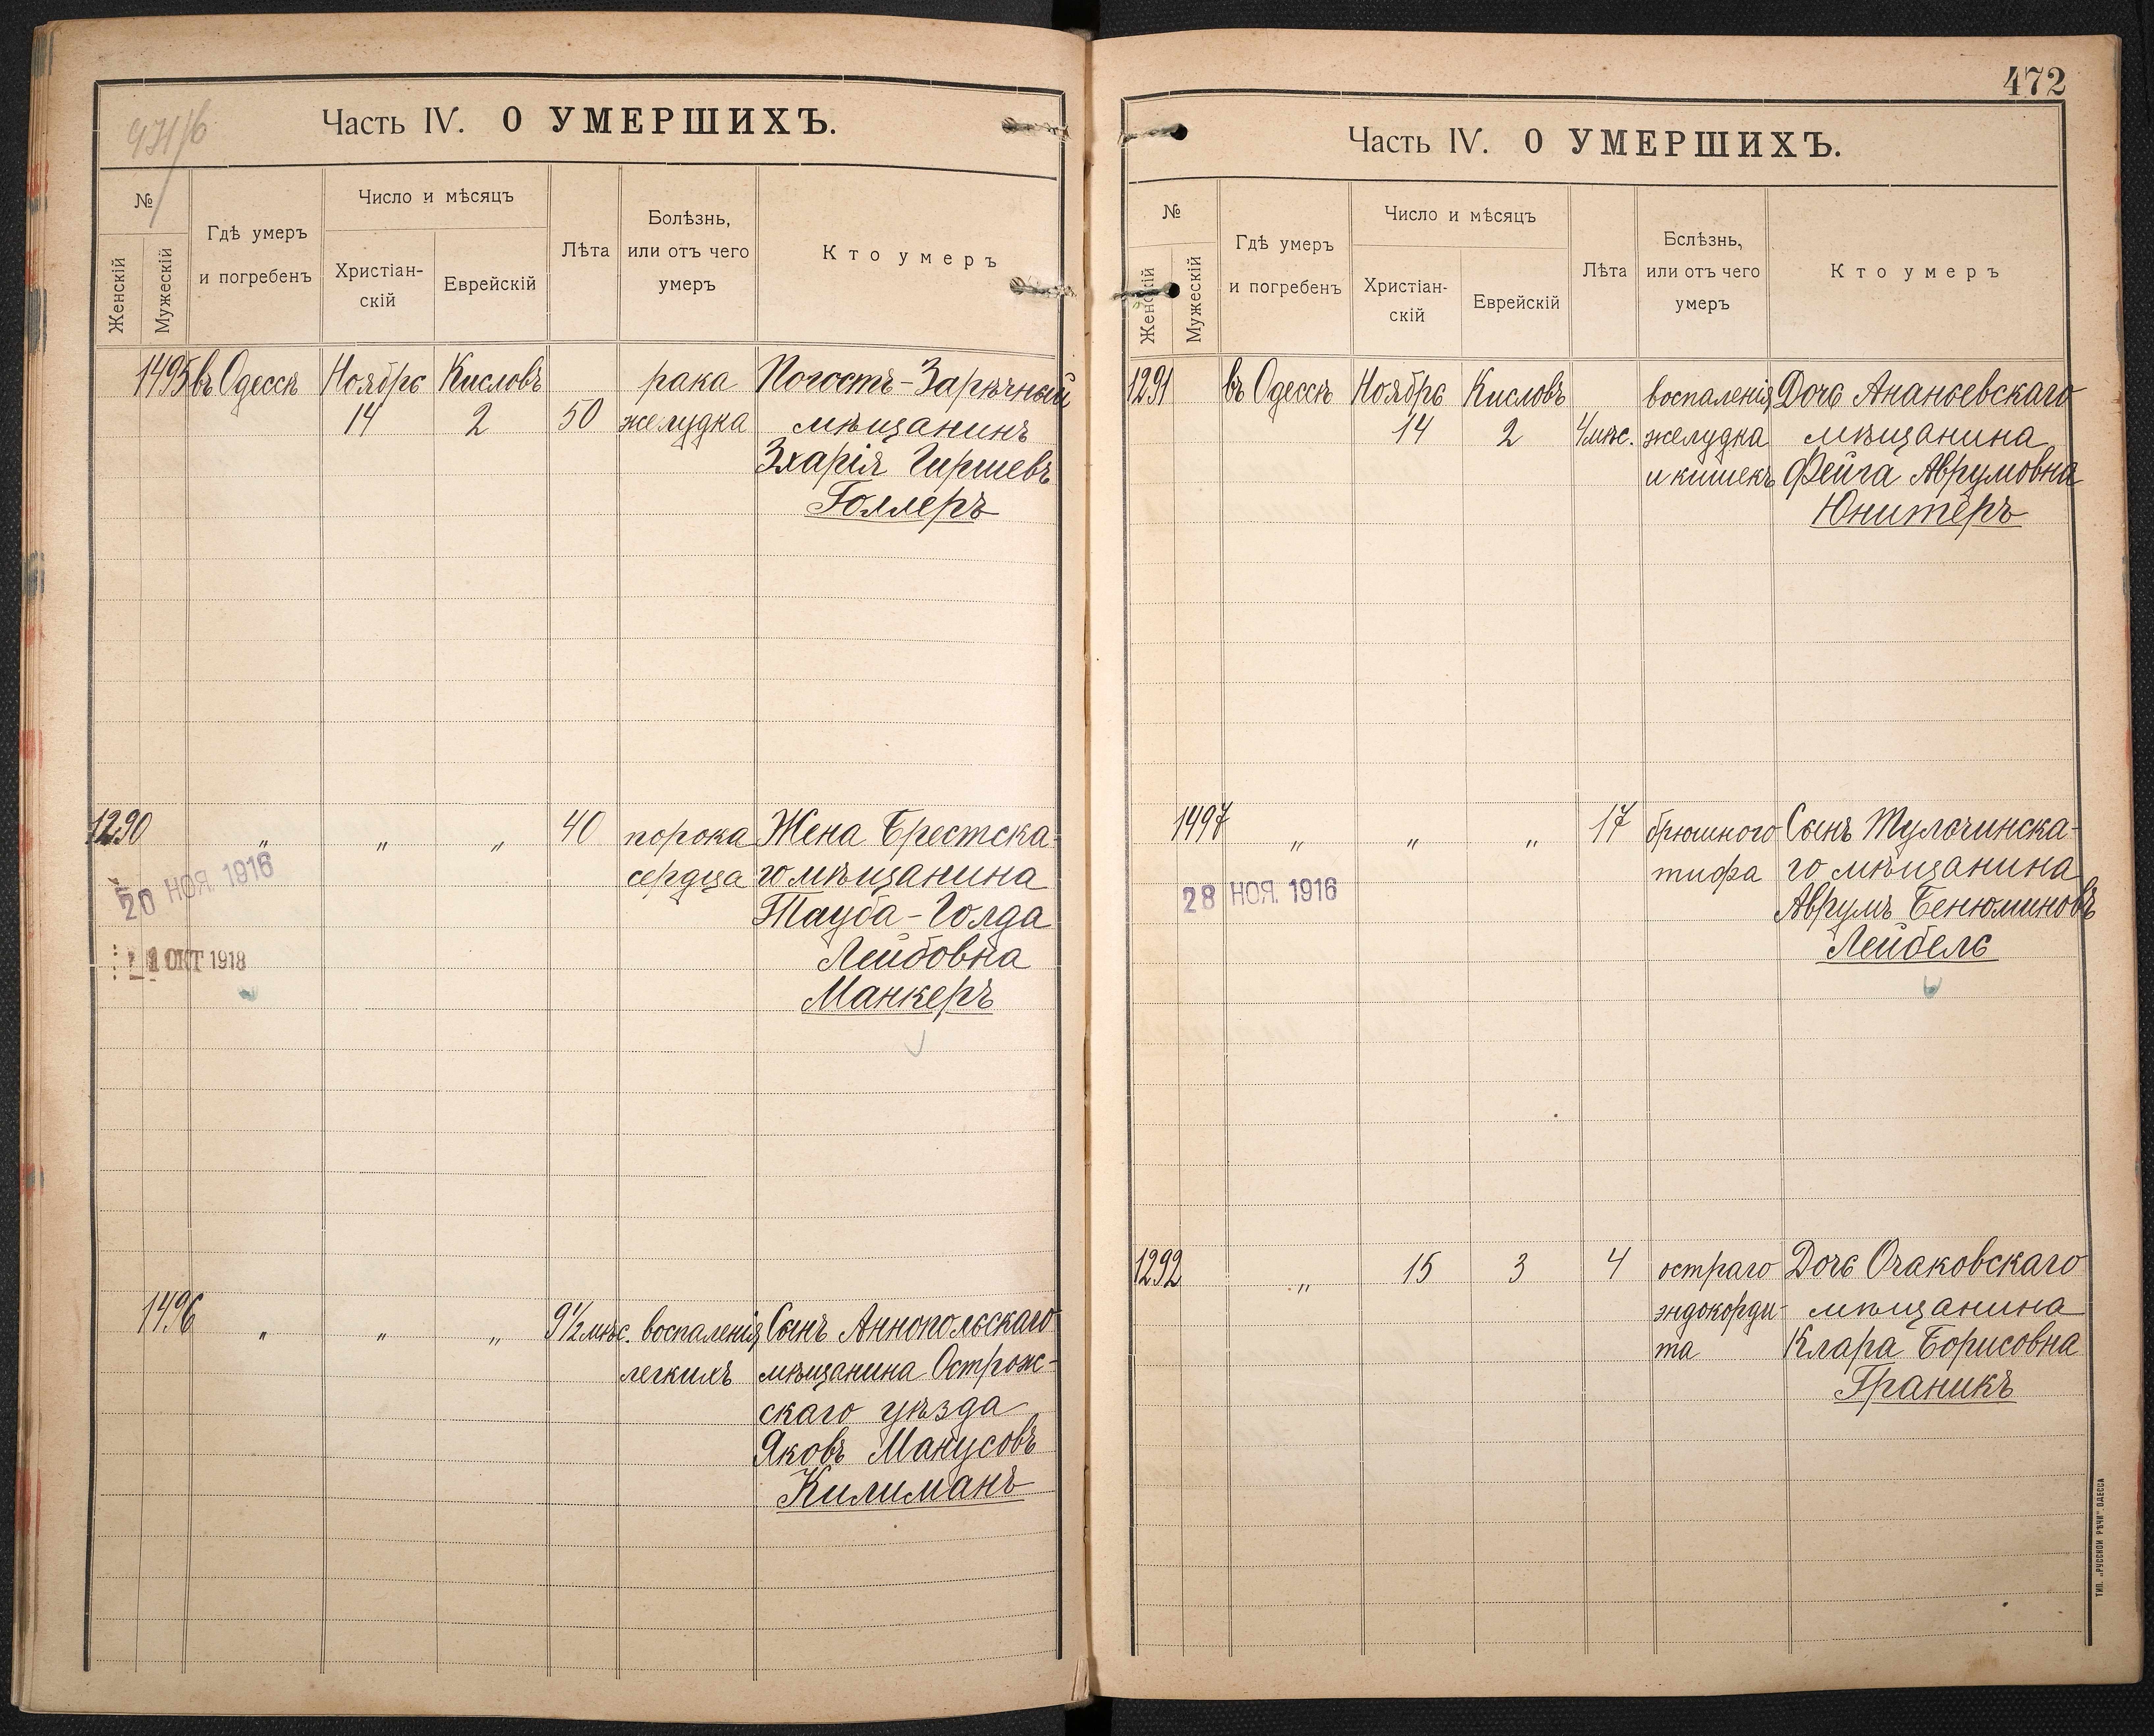 931/6
Часть IV. О УМЕРШИХЪ.
№
Женскій
Мужескій
Гдѣ умеръ
и погребенъ
Число и мѣсяцъ
Христіан-
скій
Еврейскій
Лѣта
Болѣзнь,
или отъ чего
умеръ
Кто умеръ
1495 въ Одессѣ Ноября Кисловъ рака Погостъ-Зарѣчный
14 2 50 желудка мѣщанинъ
Зхарія Гиршевъ
Голлеръ
1290 „ „ „ 40 порока Жена Брестска-
сердца го мѣщанина
20 НОЯ. 1916
Тауба-Голда
Лейбовна
1 ОКТ 1918
Манкеръ
1496 „ „ „ 9½ мѣс. воспаленія Сынъ Аннопольскаго
легкихъ мѣщанина Острож-
скаго уѣзда
Яковъ Манусовъ
Килиманъ
472
Часть IV. О УМЕРШИХЪ.
№
Женскій
Мужескій
Гдѣ умеръ
и погребенъ
Число и мѣсяцъ
Христіан-
скій
Еврейскій
Лѣта
Бслѣзнь,
или отъ чего
умеръ
Кто умеръ
1291 въ Одессѣ Ноября Кисловъ воспаленія Дочь Ананьевскаго
14 2 4 мѣс. желудка мѣщанина
и кишекъ Фейга Аврумовна
Юнитеръ
1497 „ „ „ 17 брюшного Сынъ Тульчинска-
тифа го мѣщанина
28 НОЯ. 1916
Аврумъ Бенюминовъ
Лейбель
1292 „ 15 3 4 остраго Дочь Очаковскаго
эндокорди- мѣщанина
та Клара Борисовна
Граникъ
ТИП. „РУССКОЙ РѢЧИ“ ОДЕССА